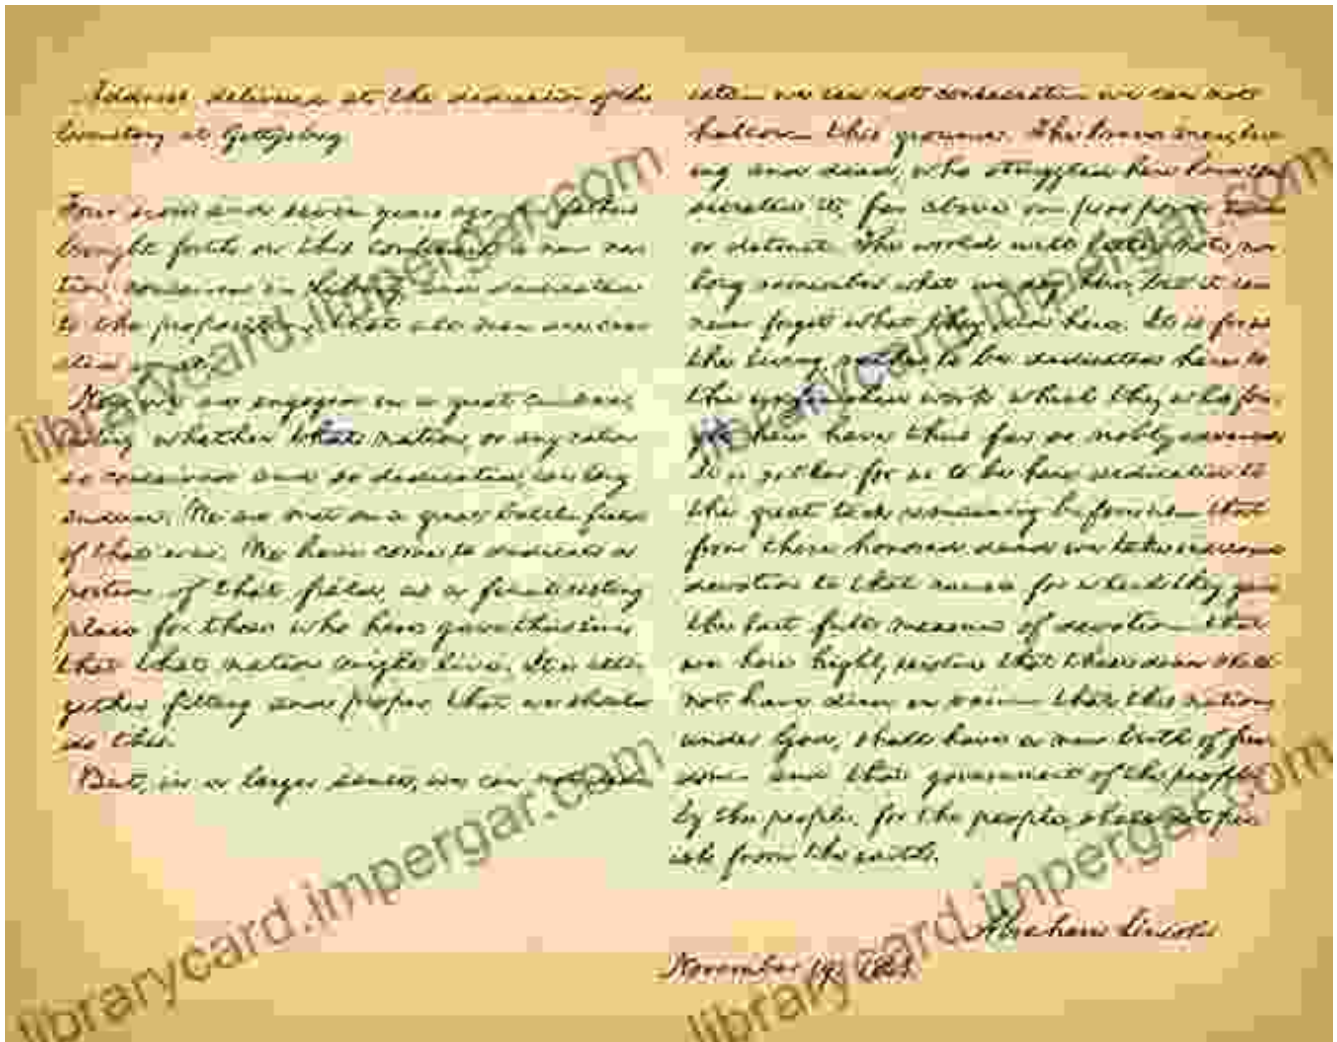 Address delivered at the dedication of the
Cemetery at Gettysburg.
Four score and seven years ago our fathers
brought forth on this continent, a new na-
tion, conceived in Liberty, and dedicated
to the proposition that all men are crea-
ted equal.
Now we are engaged in a great civil war,
testing whether that nation, or any nation
so conceived and so dedicated, can long
endure. We are met on a great battle field
of that war. We have come to dedicate a
portion of that field, as a final resting
place for those who here gave their lives
that that nation might live. It is alto-
gether fitting and proper that we should
do this.
But, in a larger sense, we can not dedi-
cate we can not consecrate we can not
hallow this ground. The brave men, liv-
ing and dead, who struggled here have con-
secrated it, far above our poor power to add
or detract. The world will little note, nor
long remember what we say here, but it can
never forget what they did here. It is for us
the living, rather, to be dedicated here to
the unfinished work which they who fou-
ght here have thus far so nobly advanced.
It is rather for us to be here dedicated to
the great task remaining before us that
from these honored dead we take increased
devotion to that cause for which they gave
the last full measure of devotion that
we here highly resolve that these dead shall
not have died in vain that this nation,
under God, shall have a new birth of free-
dom and that government of the people,
by the people, for the people, shall not per-
ish from the earth.
Abraham Lincoln
November 19, 1863.
librarycard.impergar.com
librarycard.impergar.com
librarycard.impergar.com
librarycard.impergar.com